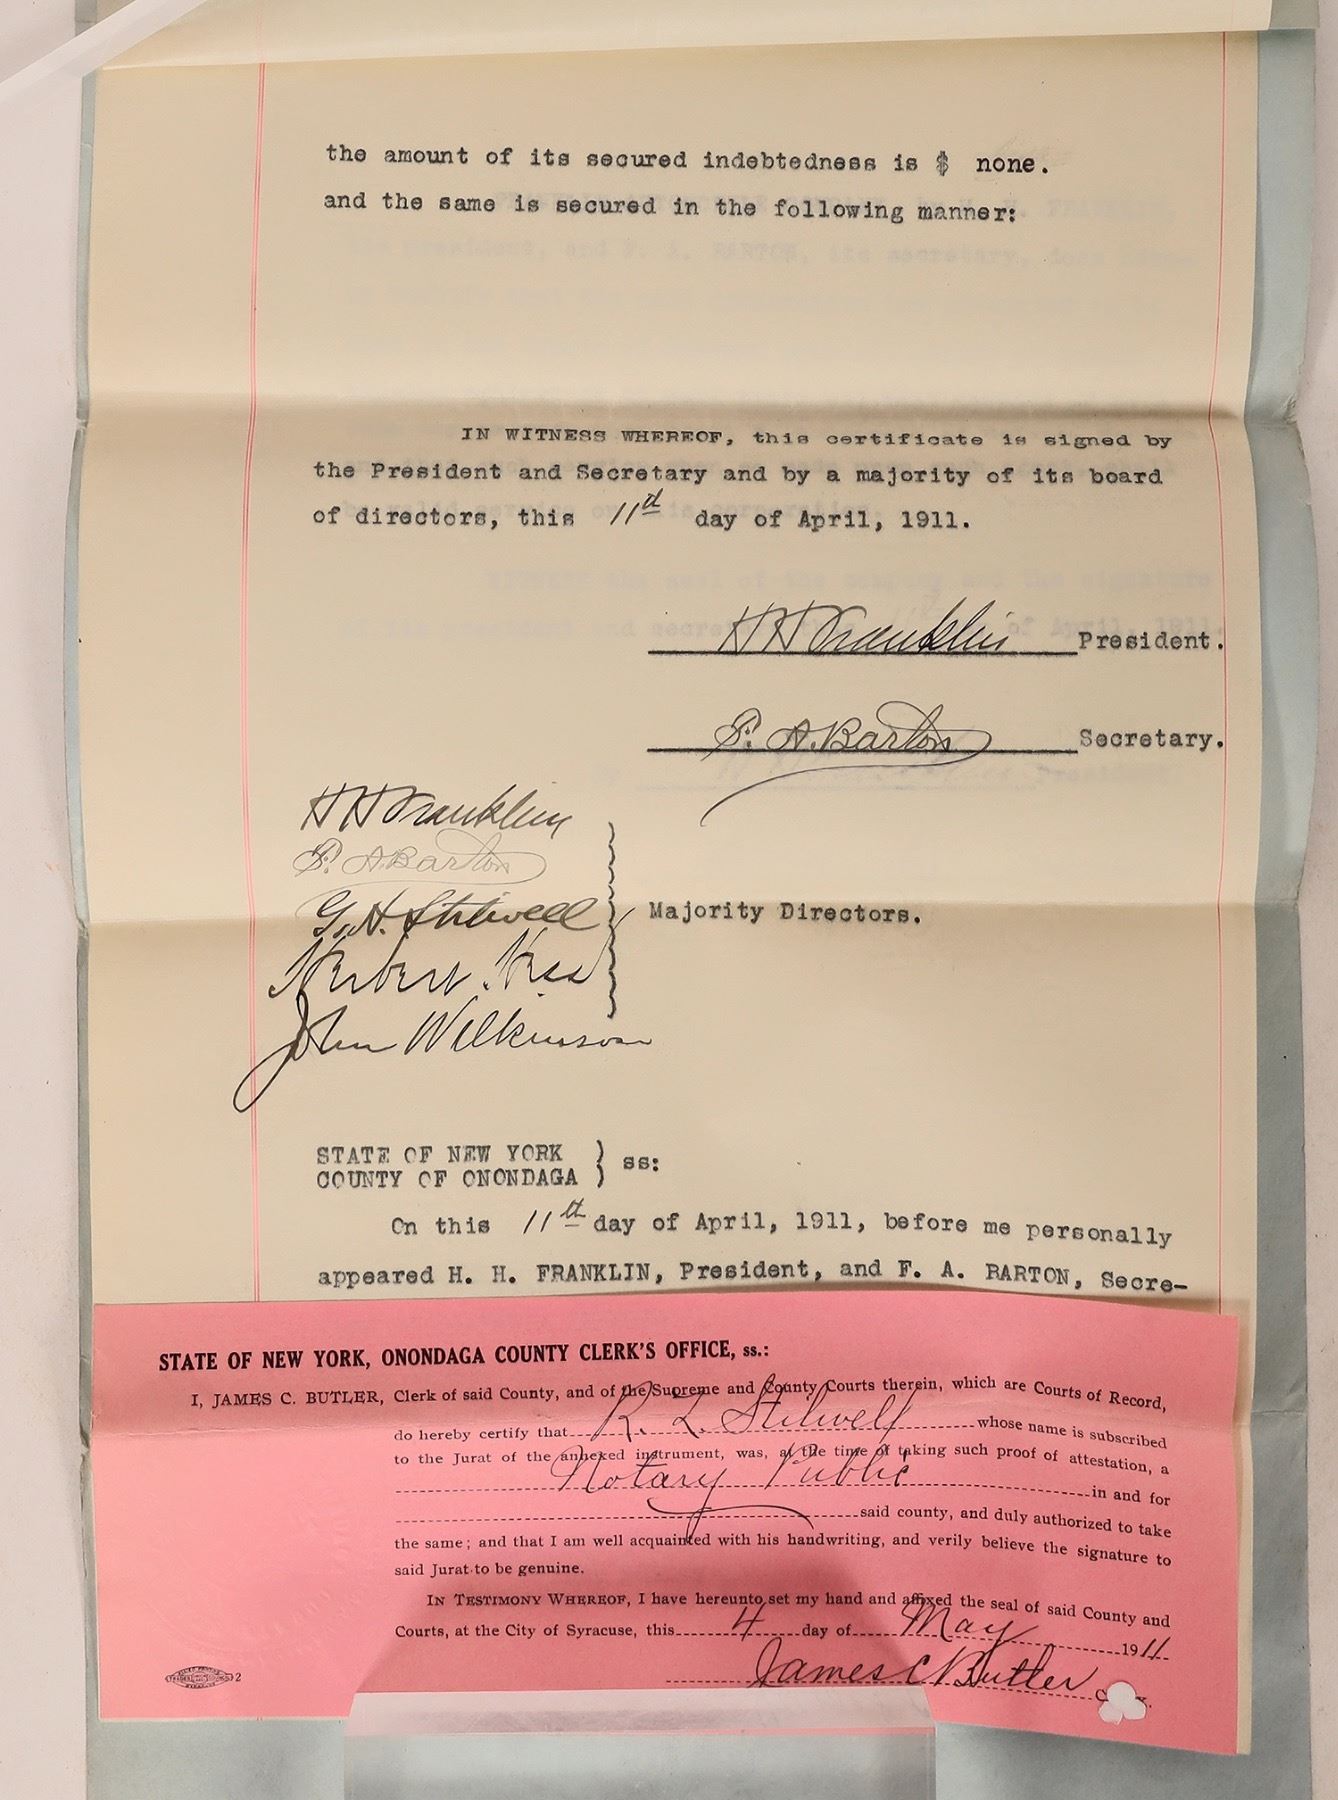 the amount of its secured indebtedness is $ none.
and the same is secured in the following manner:
IN WITNESS WHEREOF, this certificate is signed by
the President and Secretary and by a majority of its board
of directors, this 11th day of April, 1911.
H H Franklin President.
F. A. Barton Secretary.
H H Franklin
F. A. Barton
G. H. Stilwell
Majority Directors.
Herbert Hess
John Wilkinson
STATE OF NEW YORK
COUNTY OF ONONDAGA } ss:
On this 11th day of April, 1911, before me personally
appeared H. H. FRANKLIN, President, and F. A. BARTON, Secre-
STATE OF NEW YORK, ONONDAGA COUNTY CLERK'S OFFICE, ss.:
I, JAMES C. BUTLER, Clerk of said County, and of the Supreme and County Courts therein, which are Courts of Record,
do hereby certify that R. L. Stilwell whose name is subscribed
to the Jurat of the annexed instrument, was, at the time of taking such proof of attestation, a
Notary Public in and for
said county, and duly authorized to take
the same; and that I am well acquainted with his handwriting, and verily believe the signature to
said Jurat to be genuine.
IN TESTIMONY WHEREOF, I have hereunto set my hand and affixed the seal of said County and
Courts, at the City of Syracuse, this 4 day of May 1911.
James C Butler
2